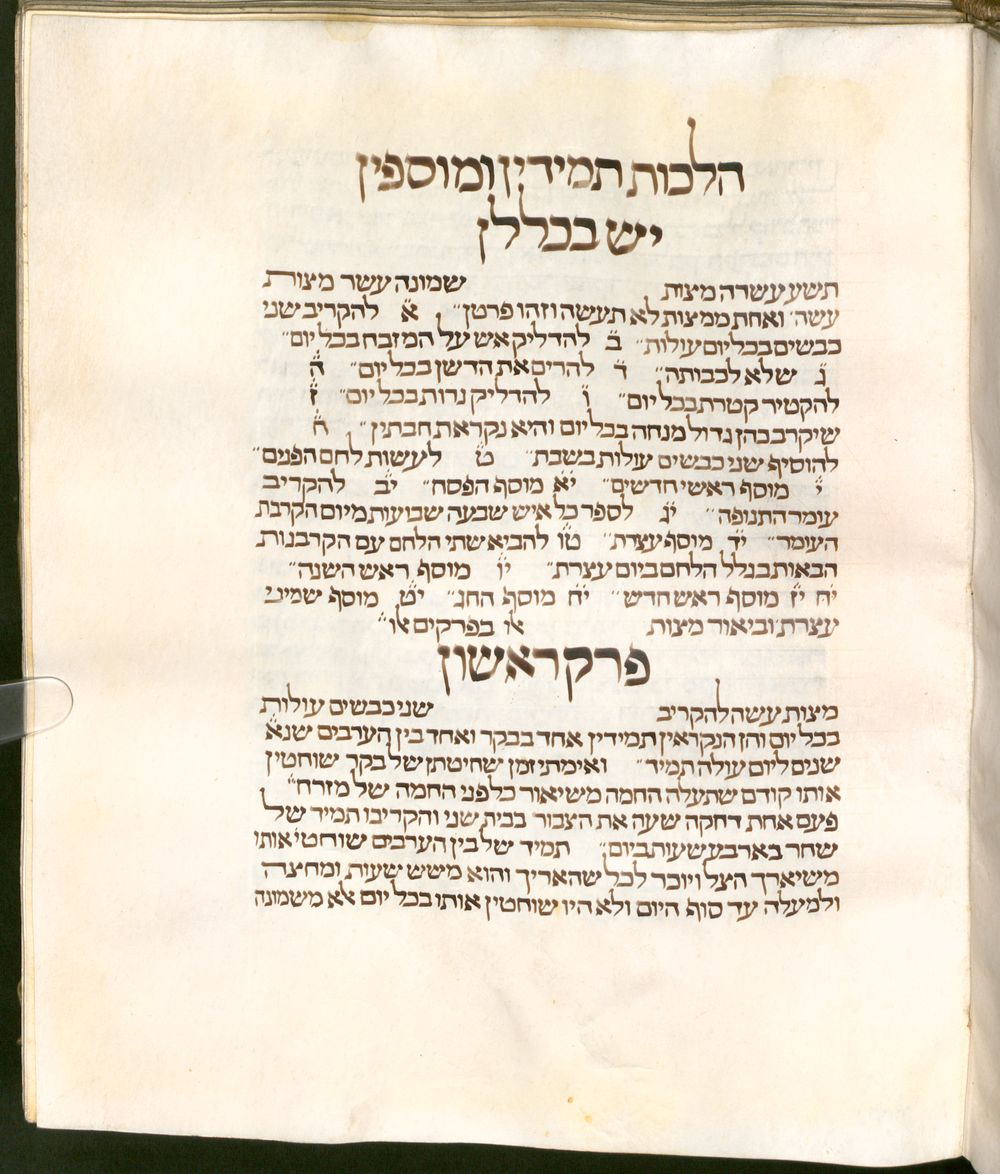 הלכות תמידין ומוספין
יש בכללן
תשע עשרה מצות שמונה עשר מצות
עשה׳ ואחת ממצות לא תעשה וזהו פרטן״ א להקריב שני
כבשים בכל יום עולות״ ב להדליק אש על המזבח בכל יום״
ג שלא לכבותה״ ד להרים את הדשן בכל יום״ ה
להקטיר קטרת בכל יום״ ו להדליק נרות בכל יום״ ז
שיקרב כהן גדול מנחה בכל יום והיא נקראת חבתין״ ח
להוסיף שני כבשים עולות בשבת״ ט לעשות לחם הפנים״
י מוסף ראשי חדשים״ יא מוסף הפסח״ יב להקריב
עומר התנופה״ יג לספר כל איש שבעה שבועות מיום הקרבת
העומר״ יד מוסף עצרת״ טו להביא שתי הלחם עם הקרבנות
הבאות בגלל הלחם ביום עצרת״ יו מוסף ראש השנה״
יח יז מוסף ראש חדש״ יח מוסף החג״ יט מוסף שמיני
עצרת׳ וביאור מצות אלו בפרקים אלו״
פרק ראשון
מצות עשה להקריב שני כבשים עולות
בכל יום והן הנקראין תמידין אחד בבקר ואחד בין הערבים שנא
שנים ליום עולה תמיד״ ואימתי זמן שחיטתן של בקר שוחטין
אותו קודם שתעלה החמה משיאור כל פני החמה של מזרח״
פעם אחת דחקה שעה את הצבור בבית שני והקריבו תמיד של
שחר בארבע שעות ביום״ תמיד של בין הערבים שוחטי׳ אותו
משיארך הצל ויוכר לכל שהאריך והוא משש שעות ומחצה
ולמעלה עד סוף היום ולא היו שוחטין אותו בכל יום אלא משמונה